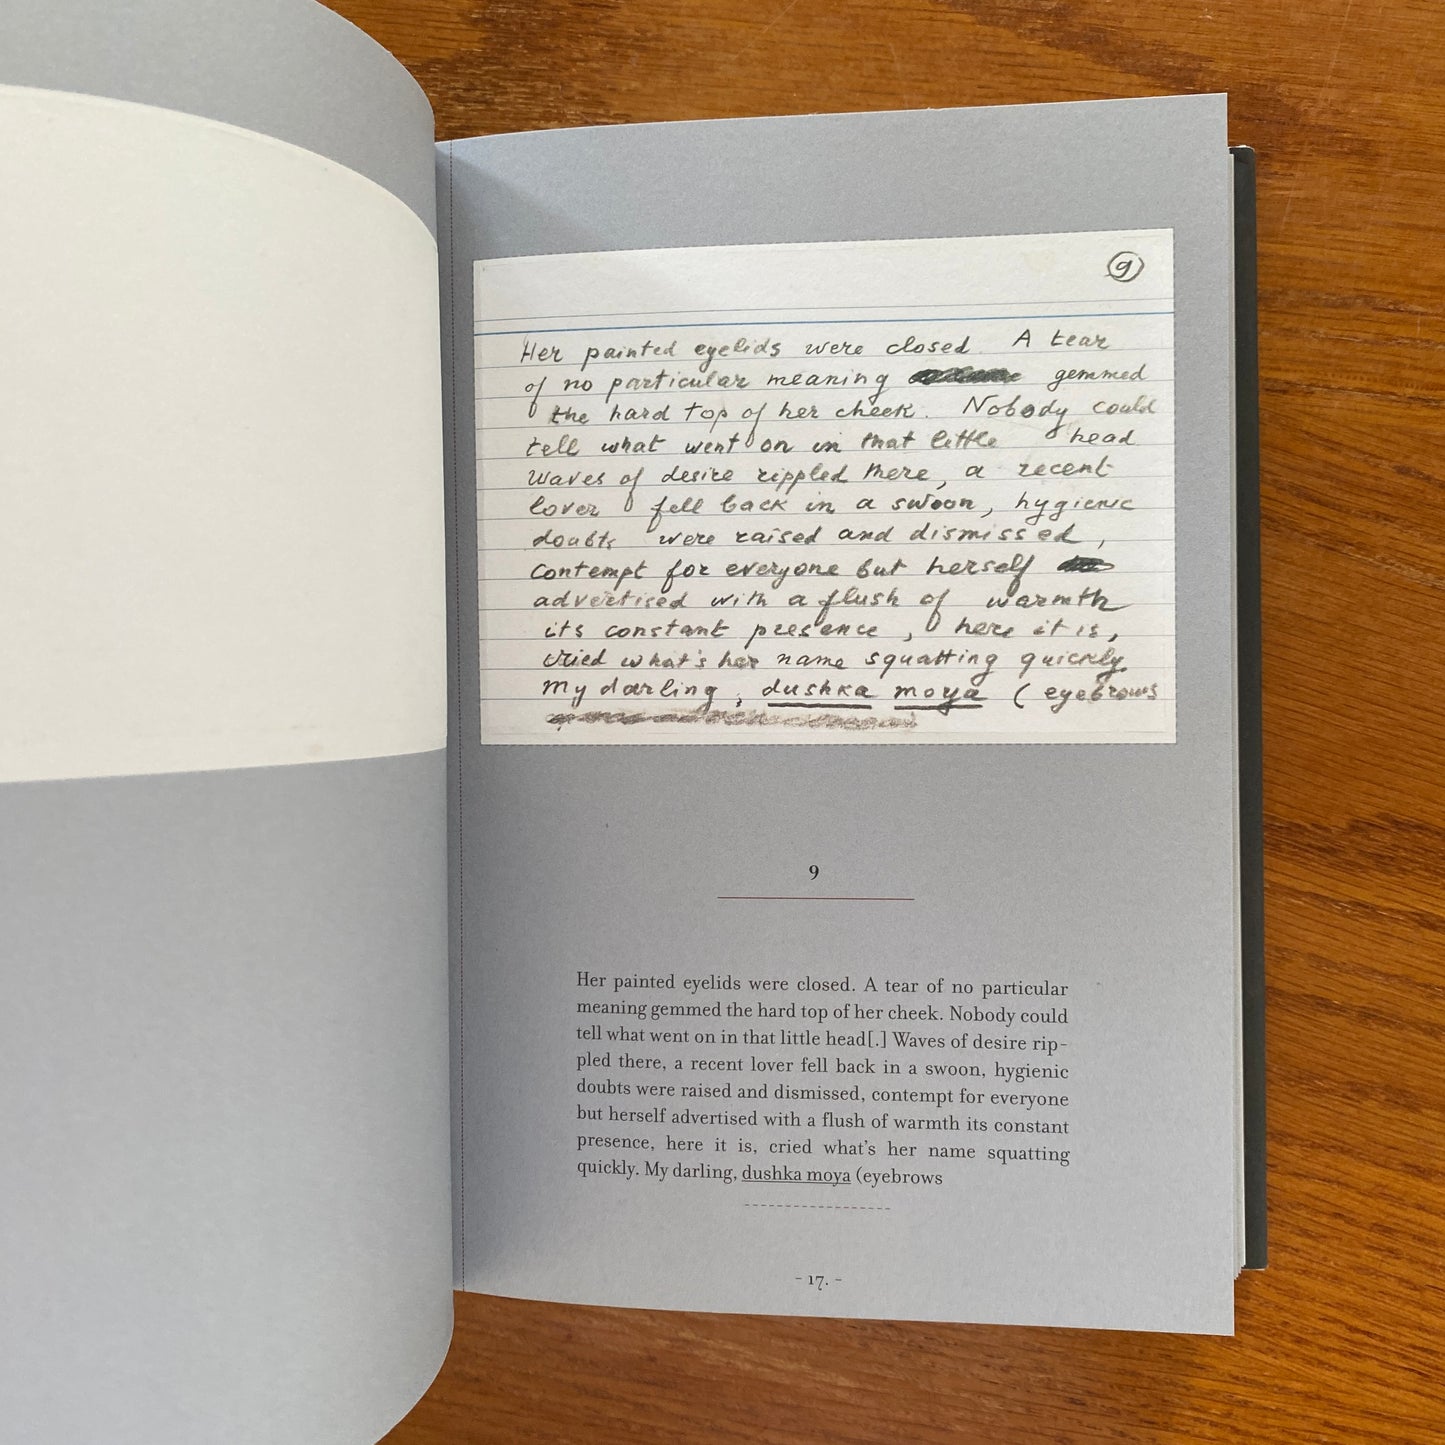 9
Her painted eyelids were closed A tear
of no particular meaning gemmed
the hard top of her cheek. Nobody could
tell what went on in that little head
Waves of desire rippled there, a recent
lover fell back in a swoon, hygienic
doubts were raised and dismissed,
contempt for everyone but herself
advertised with a flush of warmth
its constant presence, here it is,
cried what's her name squatting quickly.
My darling, dushka moya (eyebrows
9
Her painted eyelids were closed. A tear of no particular
meaning gemmed the hard top of her cheek. Nobody could
tell what went on in that little head[.] Waves of desire rip-
pled there, a recent lover fell back in a swoon, hygienic
doubts were raised and dismissed, contempt for everyone
but herself advertised with a flush of warmth its constant
presence, here it is, cried what's her name squatting
quickly. My darling, dushka moya (eyebrows
- 17. -